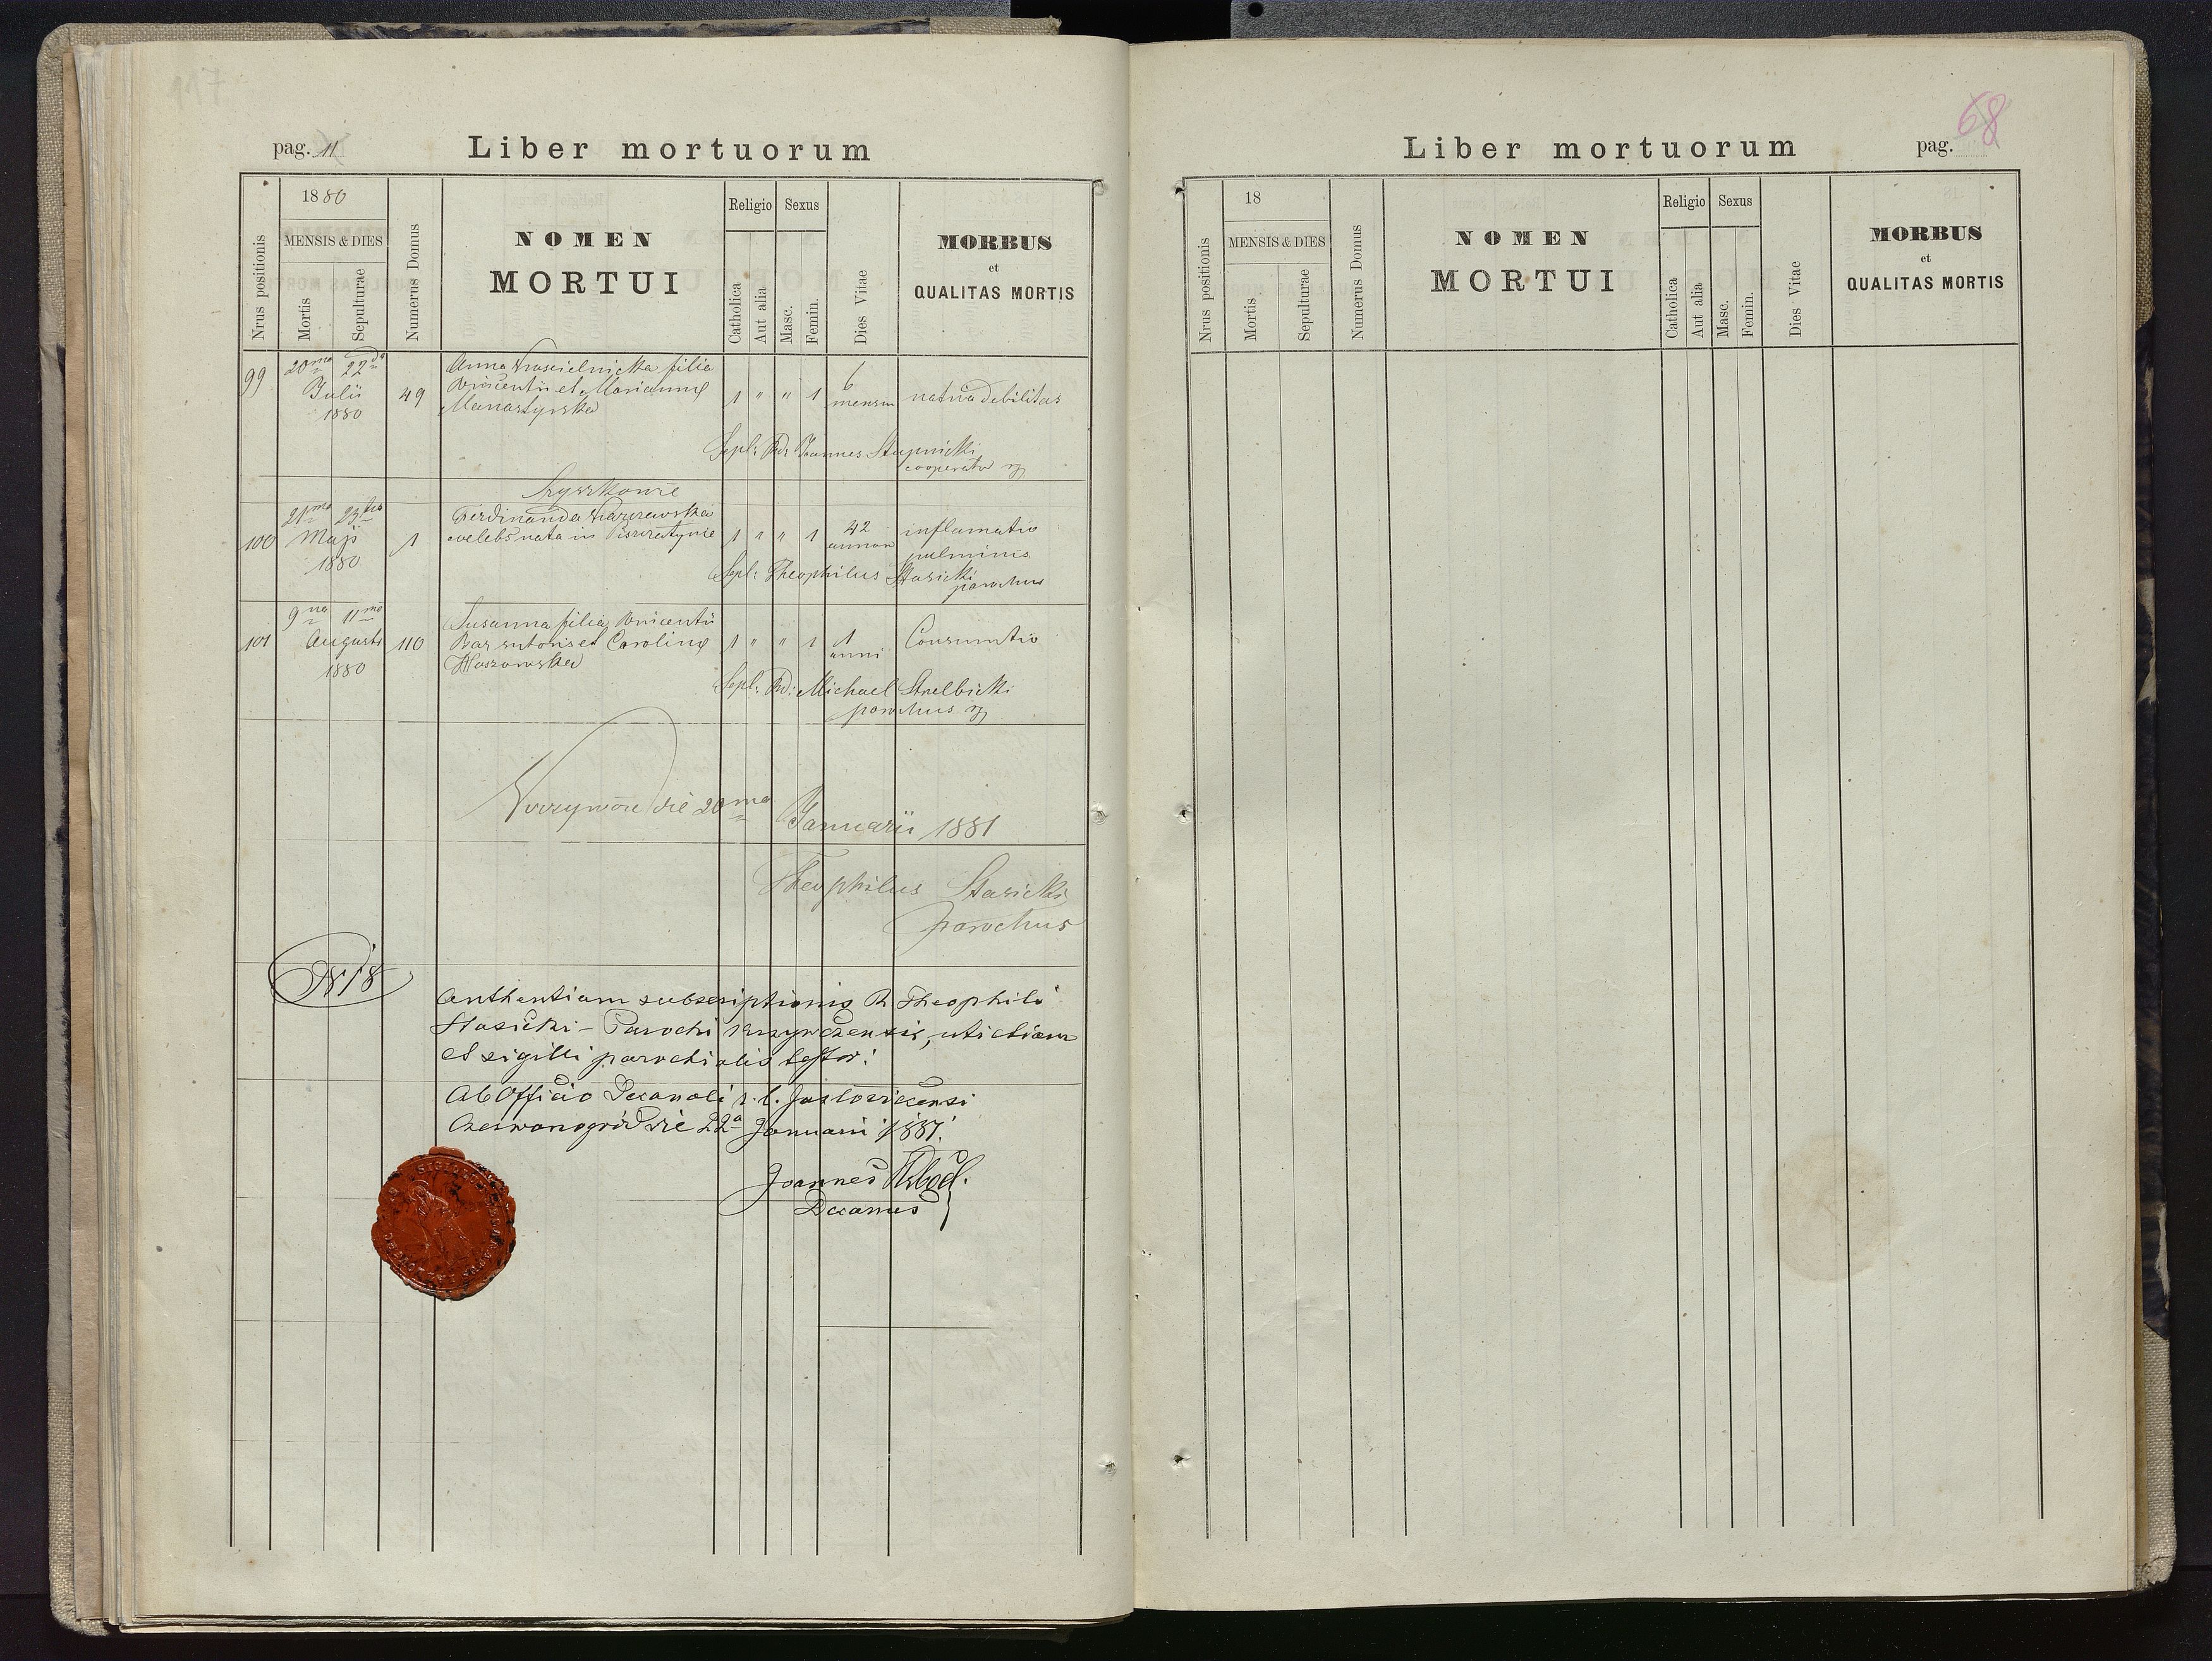 pag. 11
Liber mortuorum
Nrus positionis
1880
MENSIS & DIES
Mortis
Sepulturae
Numerus Domus
NOMEN
MORTUI
Religio
Catholica
Aut alia
Sexus
Masc.
Femin.
Dies Vitae
MORBUS
et
QUALITAS MORTIS
99
20ma 22da
Julii
1880
49
Anna filia
Vincentii et Marianna
Manastyrska
1 " " 1
6
mensium
nativa debilitas
Sepl: Rd: Joannes Stupnicki
cooperator
100
21ma 23tia
Maji
1880
1
Ferdinanda
coelebs nata in
1 " " 1
42
annor
inflamatio
pulminis
Sepl: Theophilus Stasicki
parochus
101
9na 11ma
Augusti
1880
110
Susanna filia Vincentii
sutoris et Carolina
1 " " 1
1
anni
Consumtio
Sepl: Rd: Michael Strelbicki
parochus
die 20ma Januarii 1881
Theophilus Stasicki
parochus
N 18
Authentiam subscriptionis R. Theophili
Stasicki - Parochi Krzywczensis, uti etiam
et sigilli parochialis testor.
Ab Officio Decanali r. l. Jaslovicensi
Czerwonogród die 22a Januarii 1881.
Joannes
Decanus
SIGILLUM
Liber mortuorum
pag.
68
Nrus positionis
18
MENSIS & DIES
Mortis
Sepulturae
Numerus Domus
NOMEN
MORTUI
Religio
Catholica
Aut alia
Sexus
Masc.
Femin.
Dies Vitae
MORBUS
et
QUALITAS MORTIS